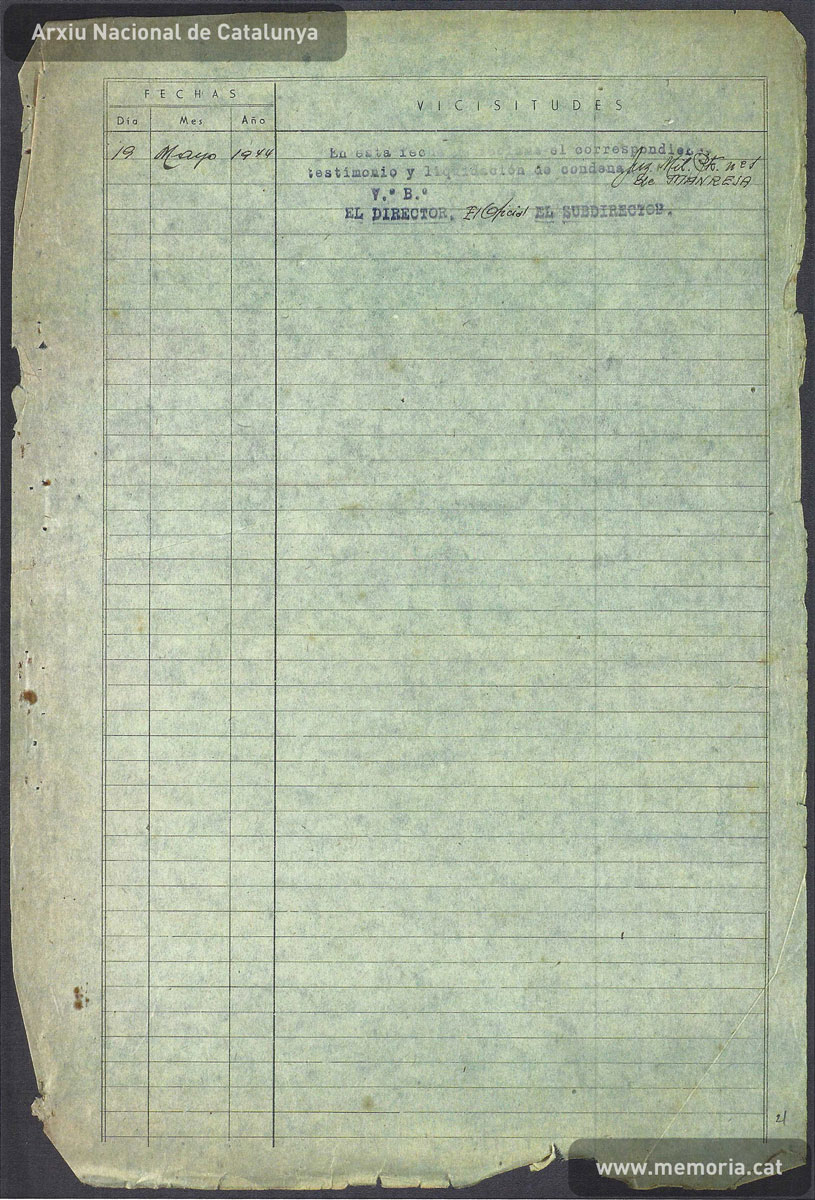 Arxiu Nacional de Catalunya
FECHAS
VICISITUDES
Día Mes Año
19 Mayo 1944 En esta el correspondien
testimonio y liquidación de condena Juz. Mil. nº 1
MANRESA
V.º B.º
EL DIRECTOR, El Oficial EL SUBDIRECTOR.
21
www.memoria.cat